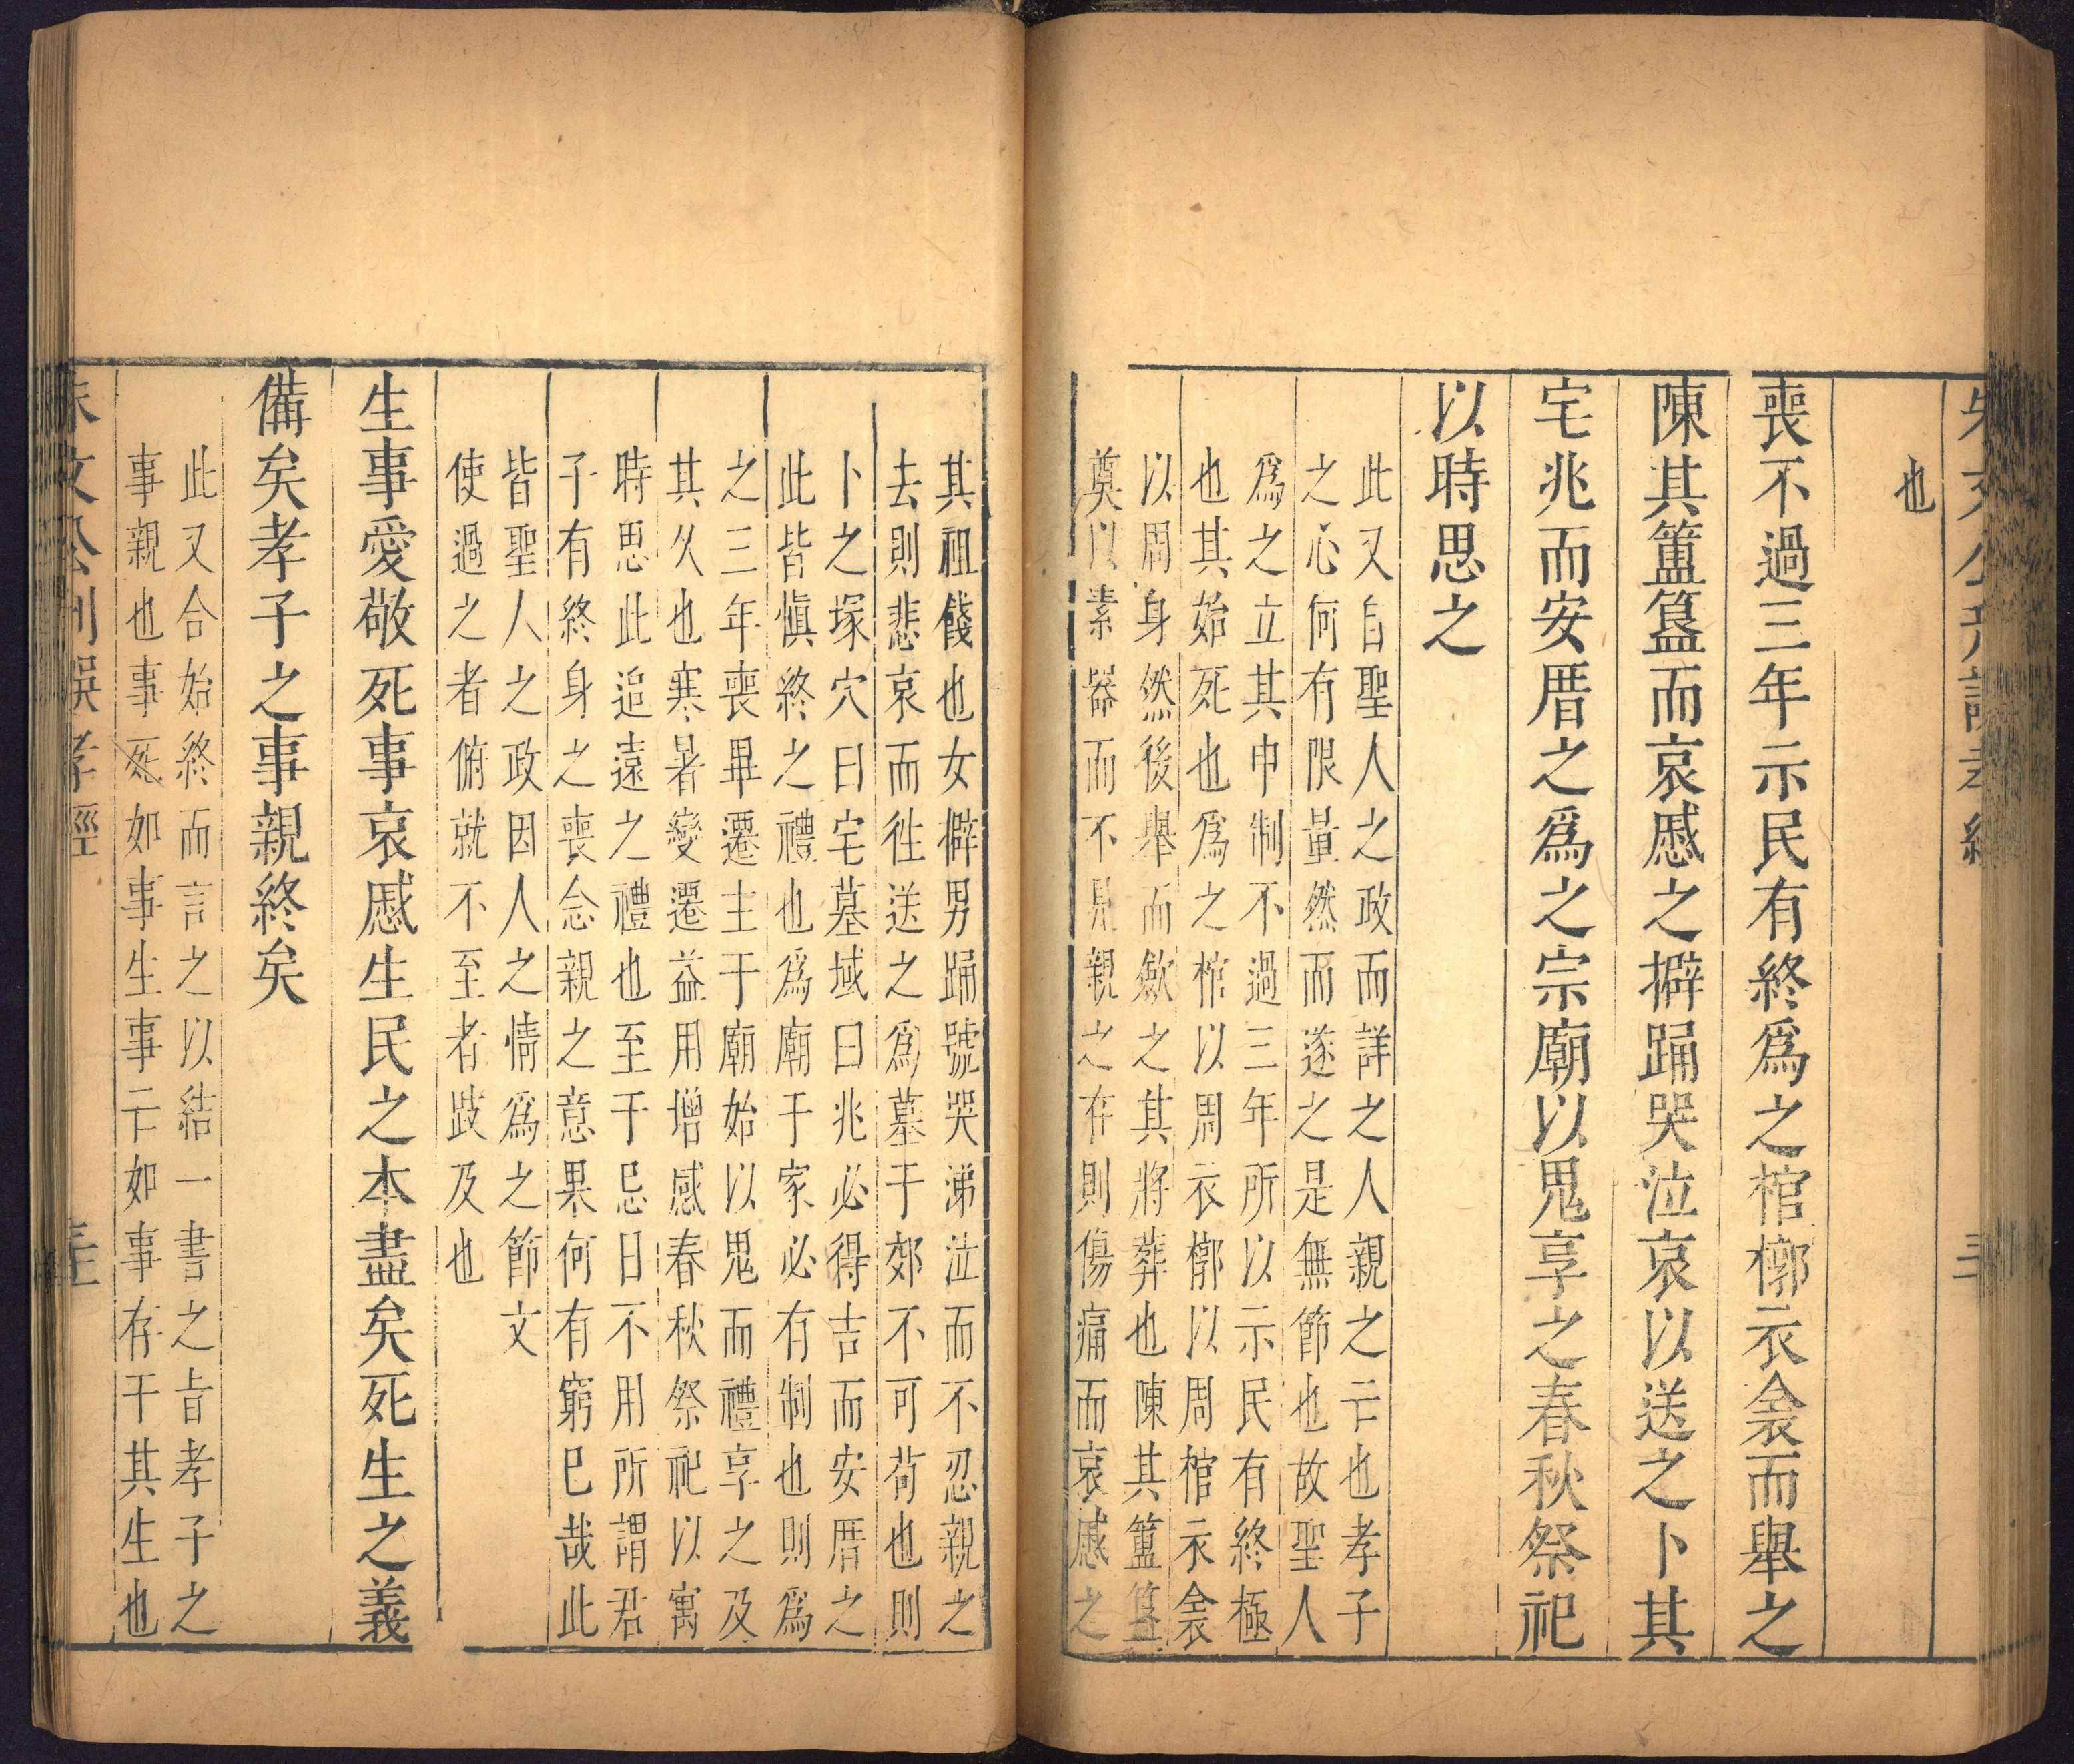 朱文公刊誤孝經
也
喪不過三年示民有終爲之棺槨衣衾而舉之
陳其簠簋而哀慼之擗踊哭泣哀以送之卜其
宅兆而安厝之爲之宗廟以鬼享之春秋祭祀
以時思之
此又自聖人之政而詳之人親之亡也孝子
之心何有限量然而遂之是無節也故聖人
爲之立其中制不過三年所以示民有終極
也其始死也爲之棺以周衣槨以周棺衣衾
以周身然後舉而歛之其將葬也陳其簠簋
奠以素器而不見親之在則傷痛而哀慼之
其祖餞也女擗男踊號哭涕泣而不忍親之
去則悲哀而徃送之爲墓于郊不可茍也則
卜之塚穴曰宅墓域曰兆必得吉而安厝之
此皆愼終之禮也爲廟于家必有制也則爲
之三年喪畢遷主于廟始以鬼而禮享之及
其久也寒暑變遷益用增感春秋祭祀以寓
時思此追遠之禮也至于忌日不用所謂君
子有終身之喪念親之意果何有窮已哉此
皆聖人之政因人之情爲之節文
使過之者俯就不至者跂及也
生事愛敬死事哀慼生民之本盡矣死生之義
備矣孝子之事親終矣
此又合始終而言之以結一書之旨孝子之
事親也事死如事生事亡如事存于其生也
朱文公刊誤孝經